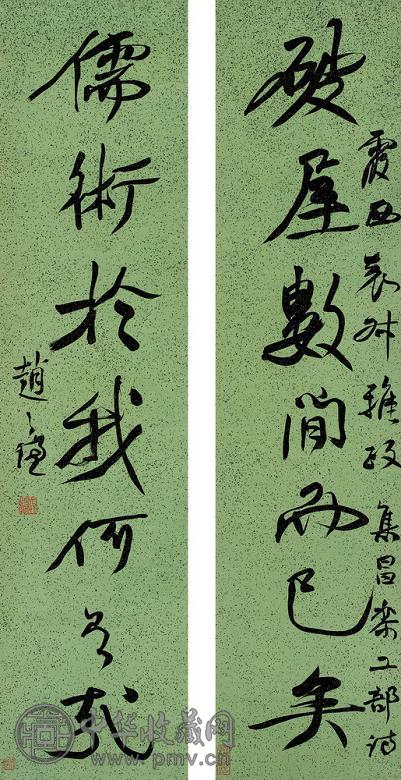 霞西表叔雅政 集昌黎工部詩
破屋數間而已矣
儒術於我何有哉
趙之謙
中华收藏网
www.pmv.cn